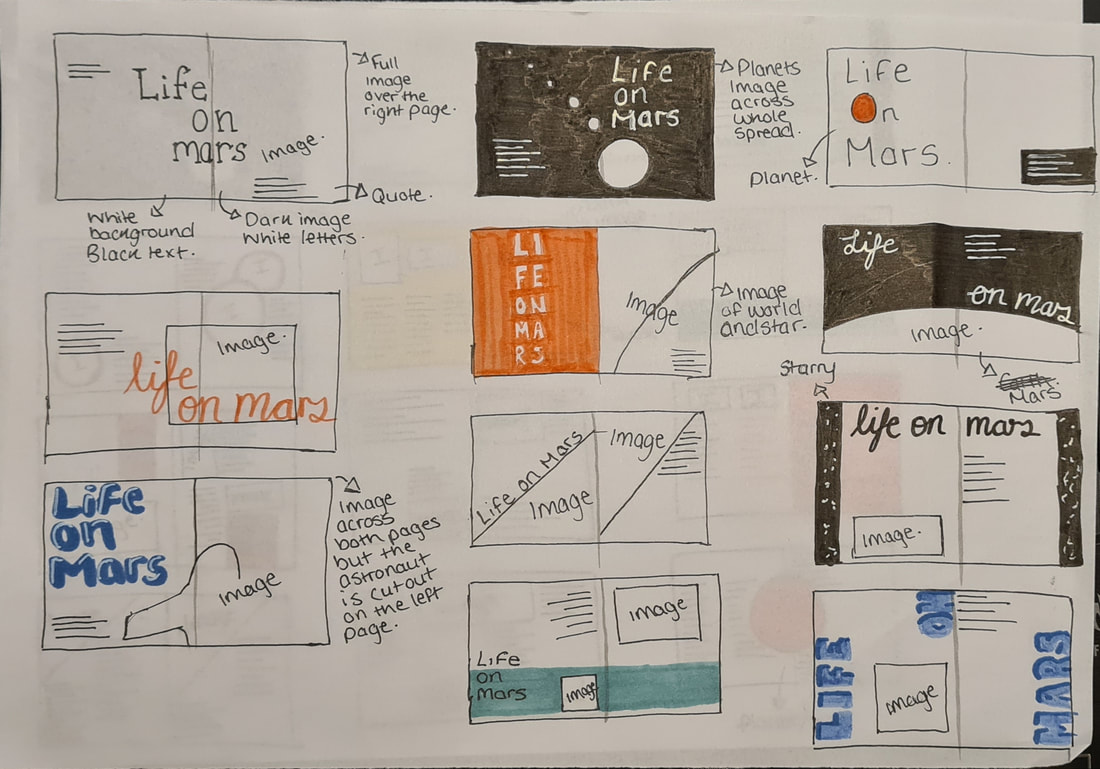 Life
on
mars
Image.
Full
image
over the
right page.
Quote.
White
background
Black text.
Dark image
White letters.
life
on mars
Image.
Life
on
Mars
Image
Image
across
both pages
but the
astronaut
is cut out
on the left
page.
Life
on
Mars
Planets
image
across
whole
spread.
LI
FE
ON
MA
RS
Image
Image
of world
and star.
Life on Mars
Image
Image
Image
Life
on
Mars
Image
Life
n
Mars.
Planet.
Life
on mars
Image.
Mars.
Starry
life on mars
Image.
LIFE
ON
MARS
Image